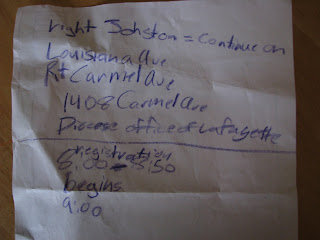 right Johston = Continue on
Louisiana Ave
Rt Carmel Ave
1408 Carmel Ave
Diocese office of Lafayette
registration
8:00 - 8:50
begins
9:00